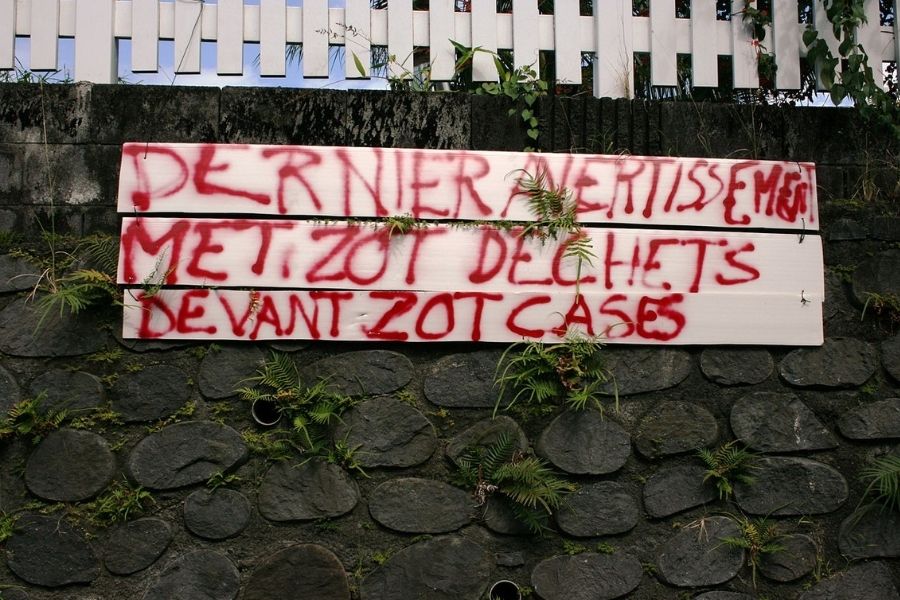 DERNIER AVERTISSEMENT
MET ZOT DECHETS
DEVANT ZOT CASES